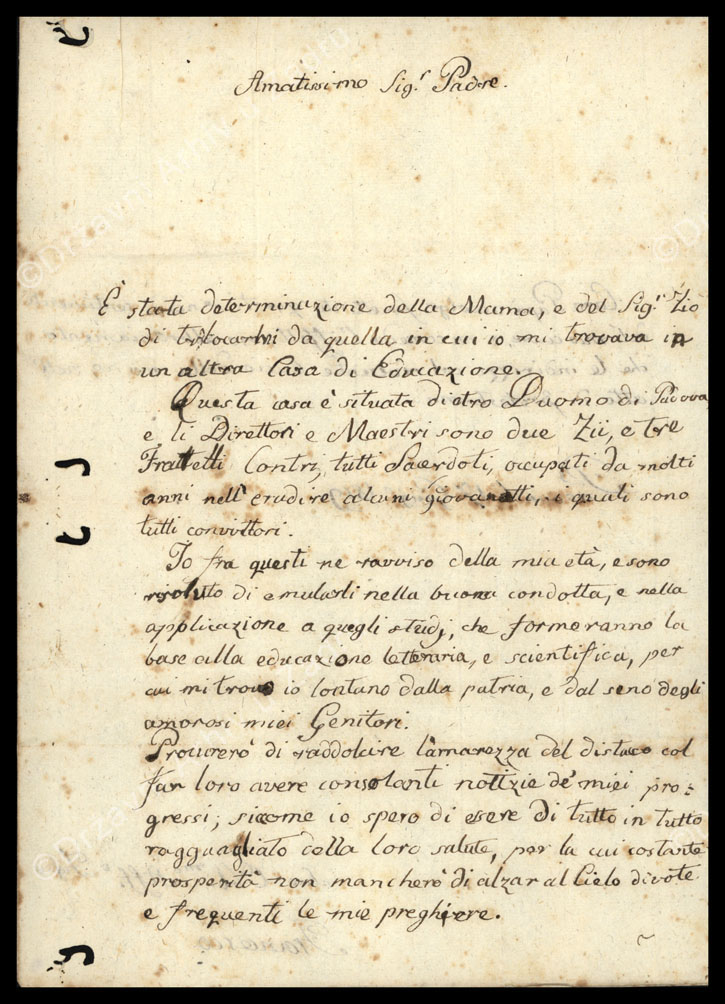 Amatissimo Sig.r Padre.
È stata determinazione della Mama, e del Sig.r Zio
di traslocarmi da quella in cui io mi trovava in
un altra Casa di Educazione.
Questa casa è situata dietro Duomo di Padova,
e li Direttori e Maestri sono due Zii, e tre
Frattelli Contri, tutti Sacerdoti, occupati da molti
anni nell' erudire alcuni giovanotti, i quali sono
tutti convittori.
Io fra questi ne ravviso della mia età, e sono
risoluto di emularli nella buona condotta, e nella
applicazione a quegli studj, che formeranno la
base alla educazione letteraria, e scientifica, per
cui mi trovo io lontano dalla patria, e dal seno degli
amorosi miei Genitori.
Procurerò di raddolcire l'amarezza del distaco col
far loro avere consolanti nottizie de' miei pro=
gressi; siccome io spero di essere di tutto in tutto
ragguagliato della loro salute, per la cui costante
prosperità non mancherò di alzar al Cielo divote
e frequenti le mie preghiere.